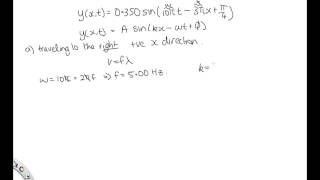 y(x,t) = 0.350 sin(10πt - 3πx + π/4)
y(x,t) = A sin(kx - ωt + φ)
a) traveling to the right +ve x direction.
v = fλ
ω = 10π = 2πf ⇒ f = 5.00 Hz. k =